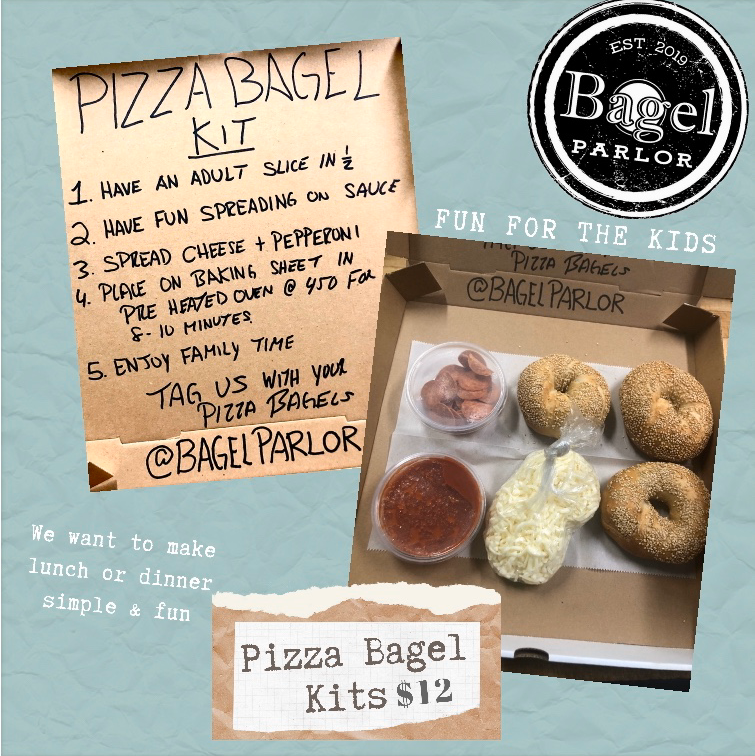 EST. 2019
Bagel
PARLOR
PIZZA BAGEL
KIT
1. HAVE AN ADULT SLICE IN ½
2. HAVE FUN SPREADING ON SAUCE
3. SPREAD CHEESE + PEPPERONI
4. PLACE ON BAKING SHEET IN
PRE HEATED OVEN @ 450 FOR
8-10 MINUTES
5. ENJOY FAMILY TIME
TAG US WITH YOUR
PIZZA BAGELS
@BAGELPARLOR
FUN FOR THE KIDS
PIZZA BAGELS
@BAGELPARLOR
We want to make
lunch or dinner
simple & fun
Pizza Bagel
Kits $12